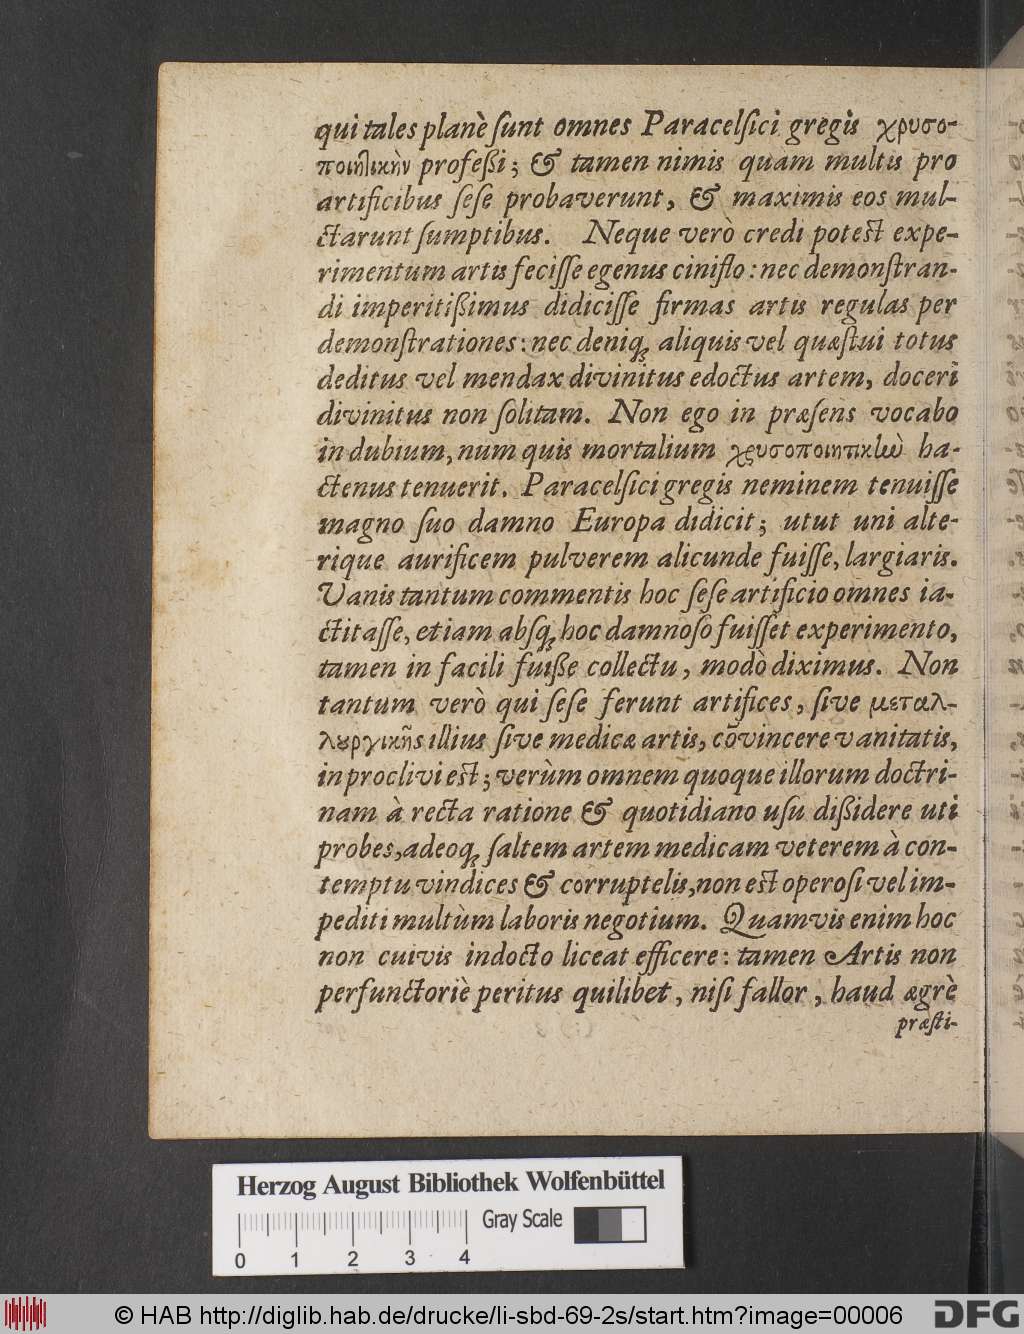 qui tales planè ſunt omnes Paracelſici gregis χρυσο-
ποιητικὴν profeßi; & tamen nimis quam multis pro
artificibus ſeſe probaverunt, & maximis eos mul-
ctarunt ſumptibus. Neque verò credi poteſt expe-
rimentum artis feciſſe egenus ciniflo: nec demonſtran-
di imperitißimus didiciſſe firmas artis regulas per
demonſtrationes: nec deniq; aliquis vel quæſtui totus
deditus vel mendax divinitus edoctus artem, doceri
divinitus non ſolitam. Non ego in præſens vocabo
in dubium, num quis mortalium χρυσοποιητικὼ ha-
ctenus tenuerit. Paracelſici gregis neminem tenuiſſe
magno ſuo damno Europa didicit; utut uni alte-
rique aurificem pulverem alicunde fuiſſe, largiaris.
Vanis tantum commentis hoc ſeſe artificio omnes ia-
ctitaſſe, etiam abſq; hoc damnoſo fuiſſet experimento,
tamen in facili fuiße collectu, modò diximus. Non
tantum verò qui ſeſe ferunt artifices, ſive μεταλ-
λȣργικῆς illius ſive medicæ artis, cõvincere vanitatis,
in proclivi eſt; verùm omnem quoque illorum doctri-
nam à recta ratione & quotidiano uſu dißidere uti
probes, adeoq; ſaltem artem medicam veterem à con-
temptu vindices & corruptelis, non eſt operoſi vel im-
pediti multùm laboris negotium. Quamvis enim hoc
non cuivis indocto liceat efficere: tamen Artis non
perfunctoriè peritus quilibet, niſi fallor, haud ægrè
præſti-
Herzog August Bibliothek Wolfenbüttel
Gray Scale
0 1 2 3 4
© HAB http://diglib.hab.de/drucke/li-sbd-69-2s/start.htm?image=00006
DFG